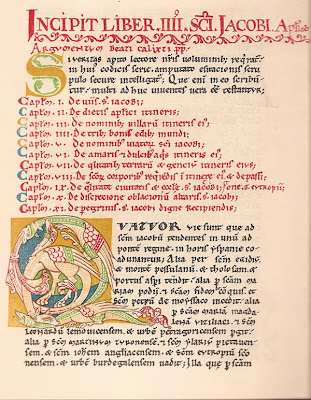 INCIPIT LIBER .IIII. SCI. JACOBI. Aplīcob
ARGVMENTVM BEATI CALIXTI PP.
Si veritas apto lectore nr̄is voluminib; req̄rat᷑
in hui᷒ codicis serie, amputato estacionis scru
pulo secure intelligat᷑; Que enī in eo scribūt᷑
tur; multi ad huc viventes vera ēē testant᷑;
Captm̄. I. De viis sc̄i iacobi;
Captm̄. II. De dietis apłici itineris;
Captm̄. III. De nominib; villarū itineris ei᷒;
Captm̄. IIII. De trib; bonis edib; mundi;
Captm̄. V. De nominib; viator sc̄i iacobi;
Captm̄. VI. De amaris & dulcib; aq̄s itineris ei᷒;
Captm̄. VII. De q̄litatib; terrarū & gentiū itineris ei᷒;
Captm̄. VIII. De sc̄or corporib; reqrēdis ī itinere ei᷒ &
Captm̄. IX. De q̄litate civitatis & eccłe sc̄i iacobi;
Captm̄. X. De discretione oblacionū altaris sc̄i iacobi;
Captm̄. XI. De peregrinis sc̄i iacobi digne recipiendis;
QVATVOR vie sunt que ad
sc̄m iacobū tendentes in unū ad
ponte regine, in horis yspanie co
adunantur; Alia per sc̄m egidiū,
& montē pessulanū, & tholosam &
portus aspi tendit, alia p sc̄am
mariam podii, & sc̄am fidem cōq̄is, & 
sc̄m petrū de moyssaco incedit, alia
p sc̄am mariā magda
lenā viziliaci, & sc̄m
leonardū lemovicensem, & urbē petragoricensem pgit;
alia p sc̄m martinum turonensē, & sc̄m ylariū pictaven
sem, & sc̄m iohem angliacensem, & sc̄m eutropiū sc̄o
nensem, & urbem burdegalensem vadit; Illa que p sc̄am